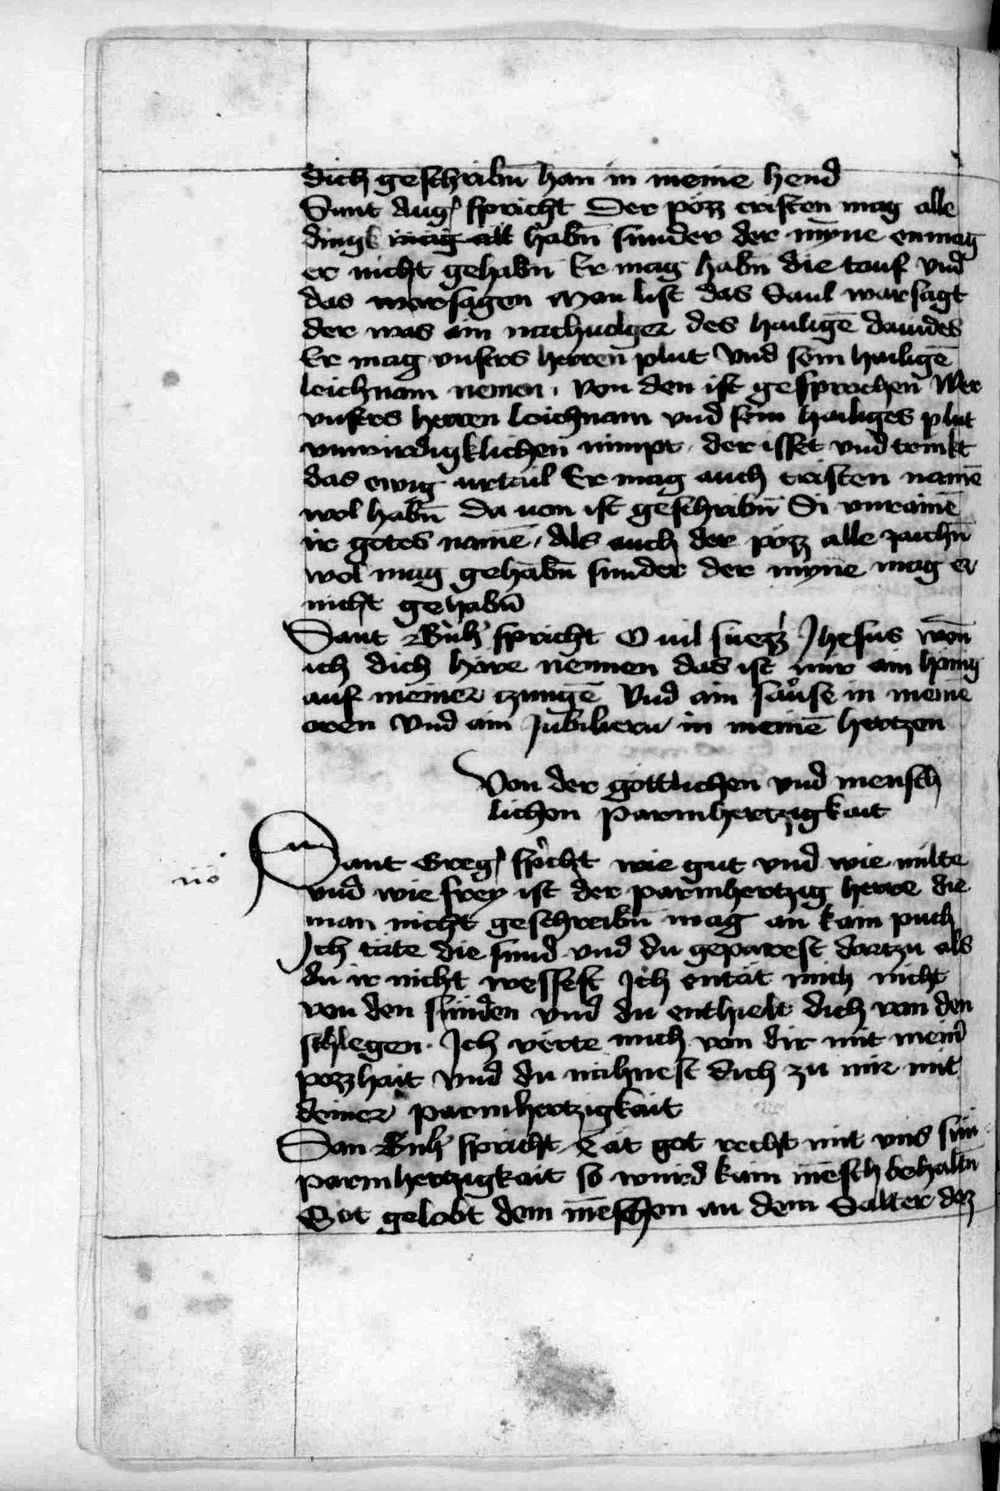 dich geschribn̄ han in meine hend
Sant Aug᷒ spricht Der pözz cristen mag alle
dingk mag all habn̄ sunder der myn̄e enmag
er nicht gehabn̄ Er mag habn̄ die touf vnd
das warsagen Man list das Saul warsagt
der was ain nachuolger des hailigē dauides
Er mag vnsers herren plut Vnd sein hailigē
leichnam nemen. von den ist gesprochen Wer
vnsers herren leichnam vnd sein hailiges plut
vnwirdigklichen nimpt. der isset vnd trinkt
das ewig urtail Er mag auch cristen namē
wol habn̄ Da uon ist geschribn̄ Si vnrainē
ir gotes namē. Als auch der pözz alle zaichn̄
wol mag gehabn̄ sunder der myn̄e mag er
nicht gehabn̄
Sant Bnh᷒ spricht O uil suezz̓ Jhesus wen̄
ich dich höre nennen das ist mir ain hönig
auf meiner czungē Vnd ain sause in meinē
oren Vnd ain Jubiliern in meinē hertzen
Von der göttlichen vnd mensch
lichen parmhertzigkait
Sant Greg᷒ sp̓cht wie gut vnd wie milte
vnd wie frey ist der parmhertzig herre die
man nicht geschreibn̄ mag an kain puch
Ich täte die sund vnd du geparest dartzu als
du ir nicht wessest Ich entät mich nicht
von den sünden vnd du enthielt dich von den
schlegen. Ich verte mich von dir mit mein̓
pozzhait Vnd du nähnest dich zu mir mit
deiner parmhertzigkait
San Bnh᷒ spricht Tät got recht mit vns sün
parmhertzigkait so wurd kain mēsch behaltn̄
Got gelobt dem mēschen an dem Salter dez